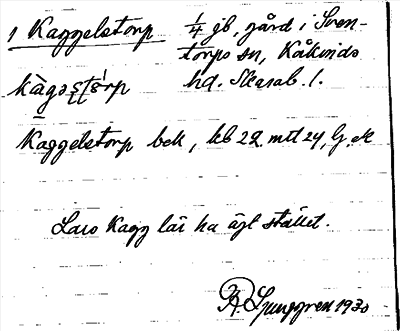 1 Kaggelstorp 1/4 gb, gård i Sven-
torps sn, Kåkinds
hd. Skarab. l.
Kaggelstorp bek, kb 22 mtl 24, G. M
Lars Kagg lär ha ägt stället.
R. Ljunggren 1930